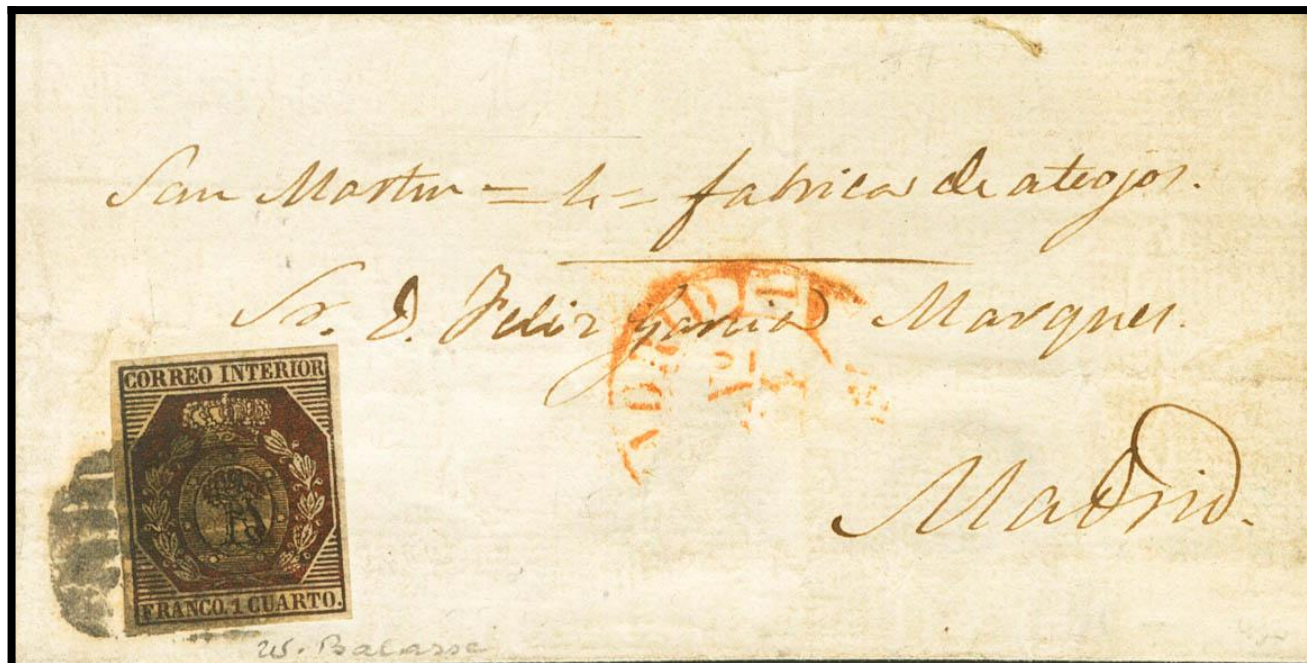 San Martin = 4 = fabrica de ateojos.
Sr. D. Felix Garcia Marques.
ADRID
Madrid.
CORREO INTERIOR
FRANCO. 1 CUARTO.
W. Balasse